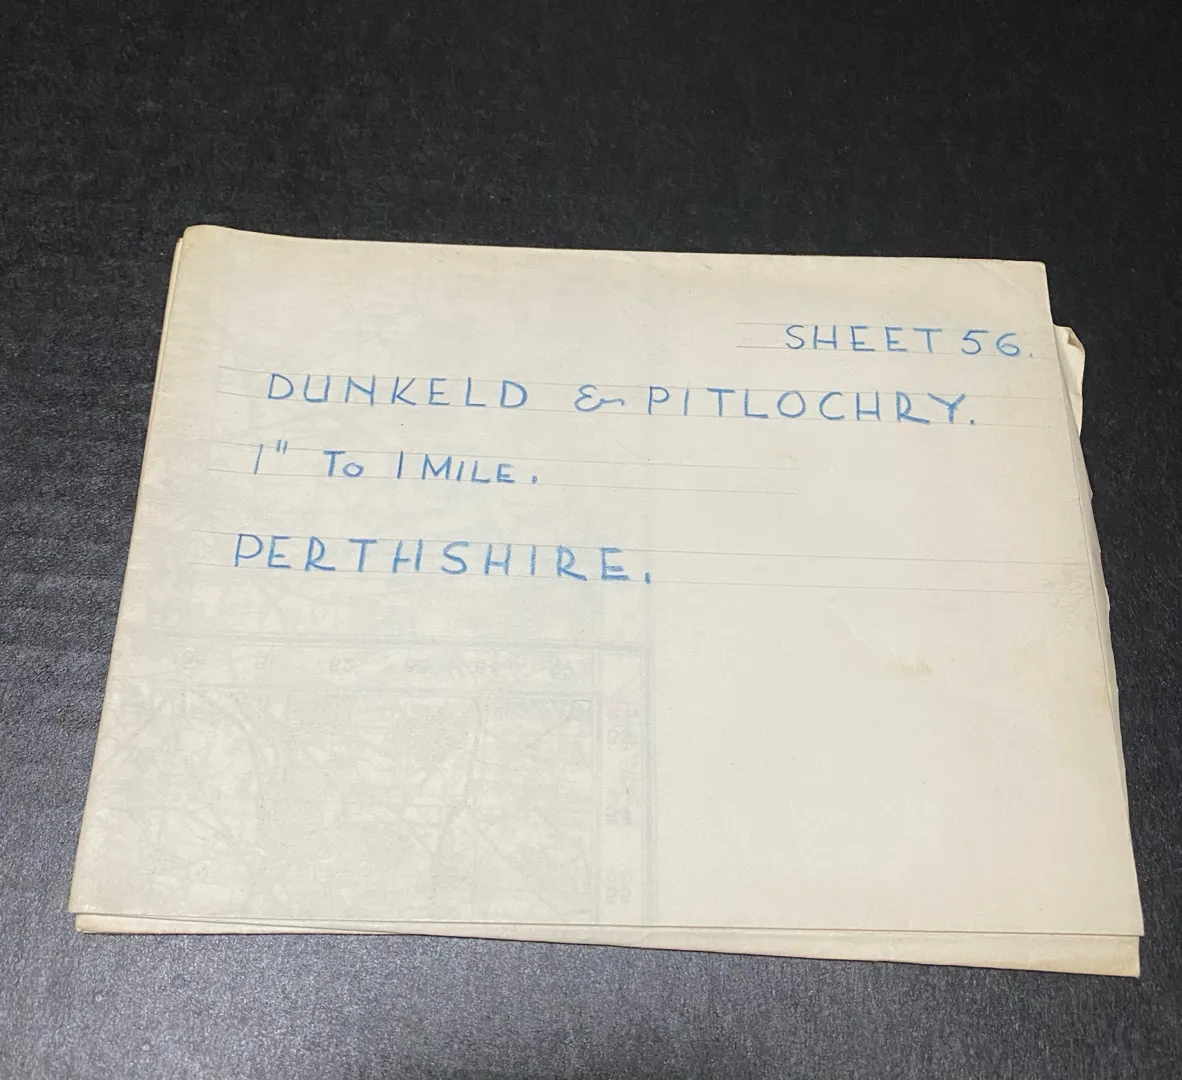 SHEET 56.
DUNKELD & PITLOCHRY.
1" TO 1 MILE.
PERTHSHIRE.